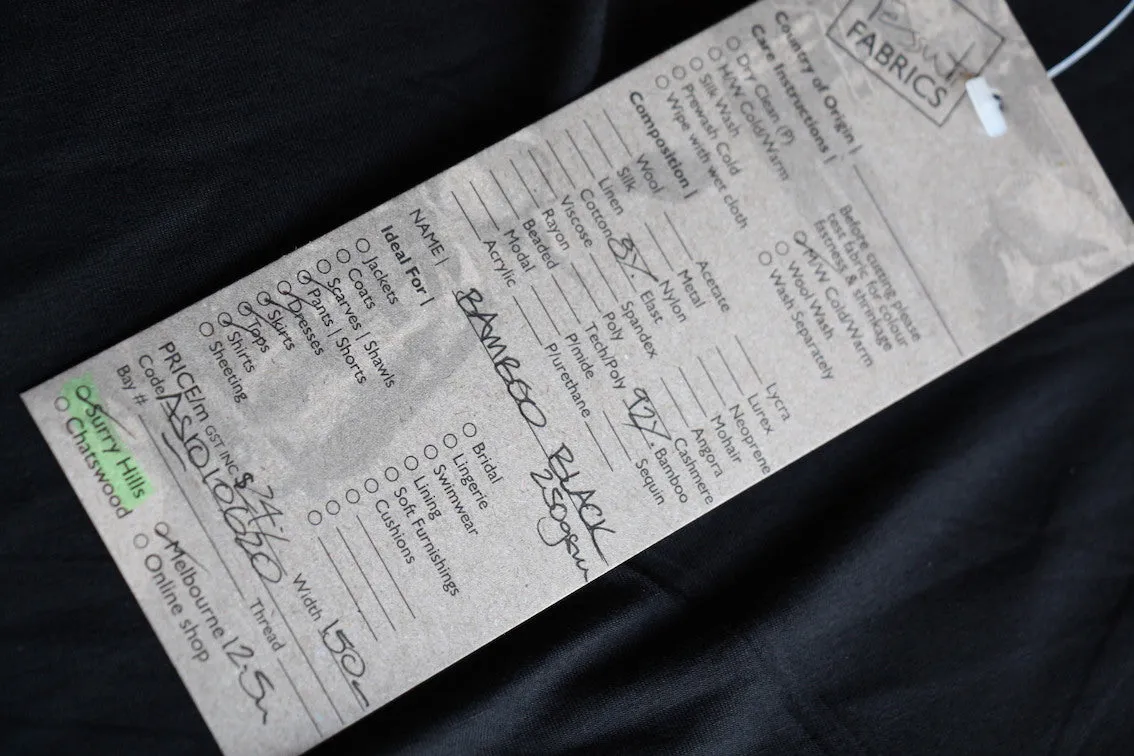 FABRICS
Country of Origin |
Care Instructions |
Before cutting please
test fabric for colour
fastness & shrinkage
Dry Clean (P)
H/W Cold/Warm
Silk Wash
Prewash Cold
Wipe with wet cloth
M/W Cold/Warm
Wool Wash
Wash Separately
Composition |
Wool
Silk
Linen
Cotton
Viscose
Rayon
Beaded
Modal
Acrylic
Acetate
Metal
Nylon
Elast
Spandex
Poly
Tech/Poly
P/mide
P/urethane
Lycra
Lurex
Neoprene
Mohair
Angora
Cashmere
92% Bamboo
Sequin
NAME | BAMBOO BLACK
250gsm
Ideal For |
Jackets
Coats
Scarves | Shawls
Pants | Shorts
Dresses
Skirts
Tops
Shirts
Sheeting
Bridal
Lingerie
Swimwear
Lining
Soft Furnishings
Cushions
PRICE/m GST INC $24.
Width 150
Code
Thread
Bay #
Surry Hills
Chatswood
Melbourne 12.5m
Online shop